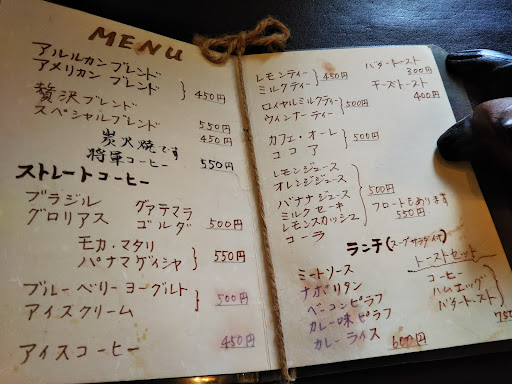 MENU
アルルカンブレンド
アメリカン ブレンド
450円
贅沢ブレンド 550円
スペシャルブレンド 450円
炭火焼です
将軍コーヒー 550円
ストレートコーヒー
ブラジル グァテマラ
グロリアス ゴルダ 500円
モカ・マタリ
パナマゲイシャ
550円
ブルーベリーヨーグルト
アイスクリーム
500円
アイスコーヒー 450円
レモンティー
ミルクティー
450円
ロイヤルミルクティー
ウィンナーティー
500円
カフェ・オーレ
ココア
500円
レモンジュース
オレンジジュース
バナナジュース
ミルクセーキ
レモンスカッシュ
コーラ
500円
フロートもあります
550円
バタートースト
300円
チーズトースト
400円
ランチ(スープサラダ付)
ミートソース
ナポリタン
ベーコンピラフ
カレー味ピラフ
カレーライス
600円
トーストセット
コーヒー
ハムエッグ
バタートースト
750